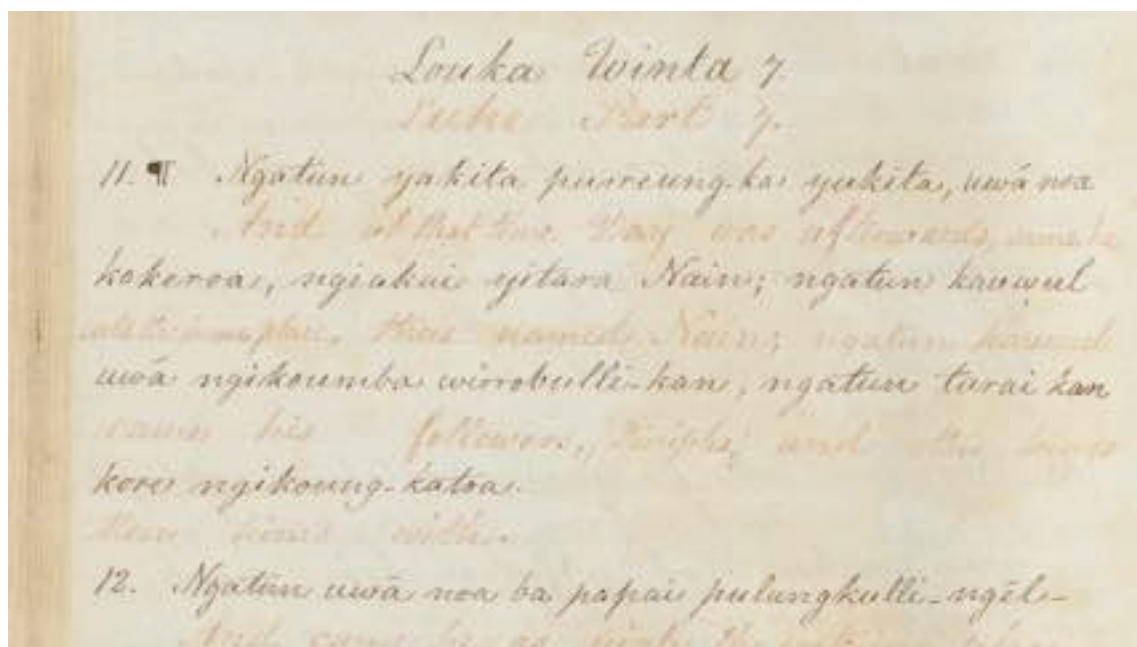 Louka Winta 7
Luke Part 7.
11. ¶ Ngatun yakita purreung-ka yukita, uwá noa
And at that time Day was afterwards, came he
kokeroa, ngiakai yitara Nain; ngatun kauwul
thus named Nain; ngatun kauwul
uwá ngikoumba wirrobulli-kan, ngatun tarai kan
came his followers, and other beings
kore ngikoung-katoa.
Men him with.
12. Ngatun uwá noa ba papai pulungkulli-ngél-
And came he as nigh